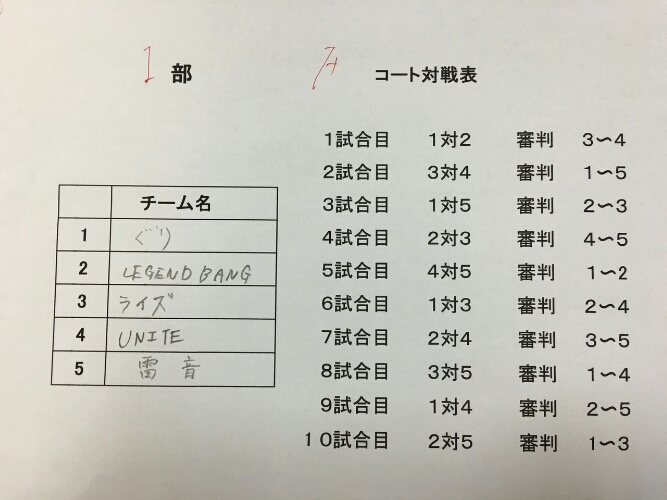 1部
コート対戦表
チーム名
1 ぐり
2 LEGEND BANG
3 ライズ
4 UNITE
5 雷音
1試合目 1対2 審判 3〜4
2試合目 3対4 審判 1〜5
3試合目 1対5 審判 2〜3
4試合目 2対3 審判 4〜5
5試合目 4対5 審判 1〜2
6試合目 1対3 審判 2〜4
7試合目 2対4 審判 3〜5
8試合目 3対5 審判 1〜4
9試合目 1対4 審判 2〜5
10試合目 2対5 審判 1〜3